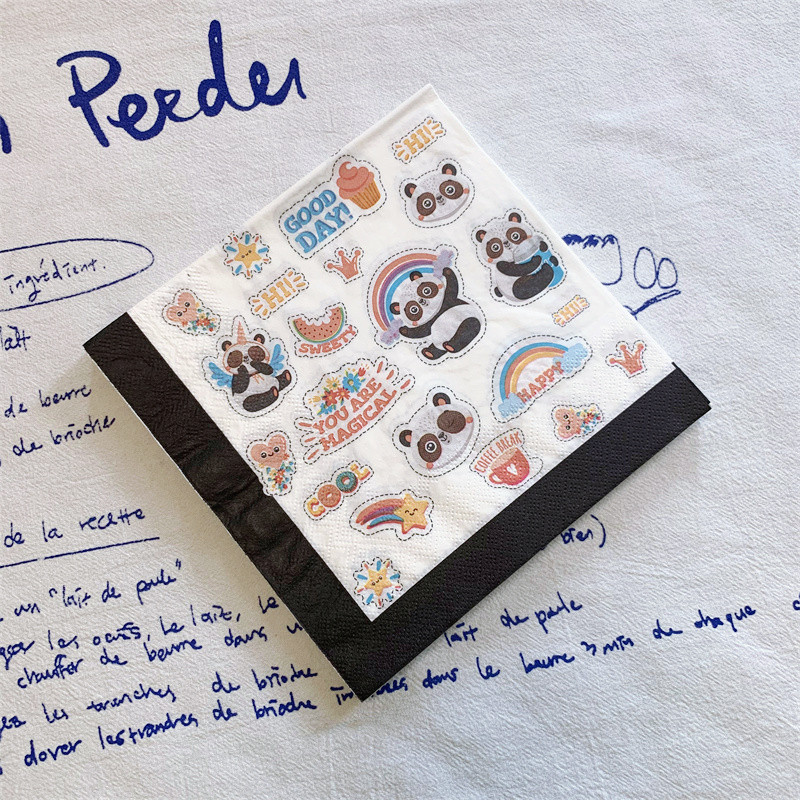 Perdu
ingrédient.
lait
de beurre
de brioche
de la recette
un "lait de poule"
les oeufs, le lait, le
bien)
chauffer de beurre dans
lait de poule
les tranches de brioche
dans le beurre 3 min de chaque
dorer les trandres de brioche
HI!
GOOD
DAY!
HI!
SWEETY
HI!
HAPPY
YOU ARE
MAGICAL
COOL
COFFEE BREAK